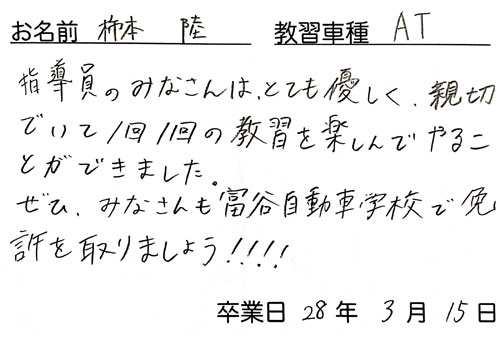 お名前 柿本 陸 教習車種 AT
指導員のみなさんは、とても優しく、親切
でいて1回1回の教習を楽しんでやるこ
とができました。
ぜひ、みなさんも富谷自動車学校で免
許を取りましょう!!!!
卒業日 28年 3月 15日